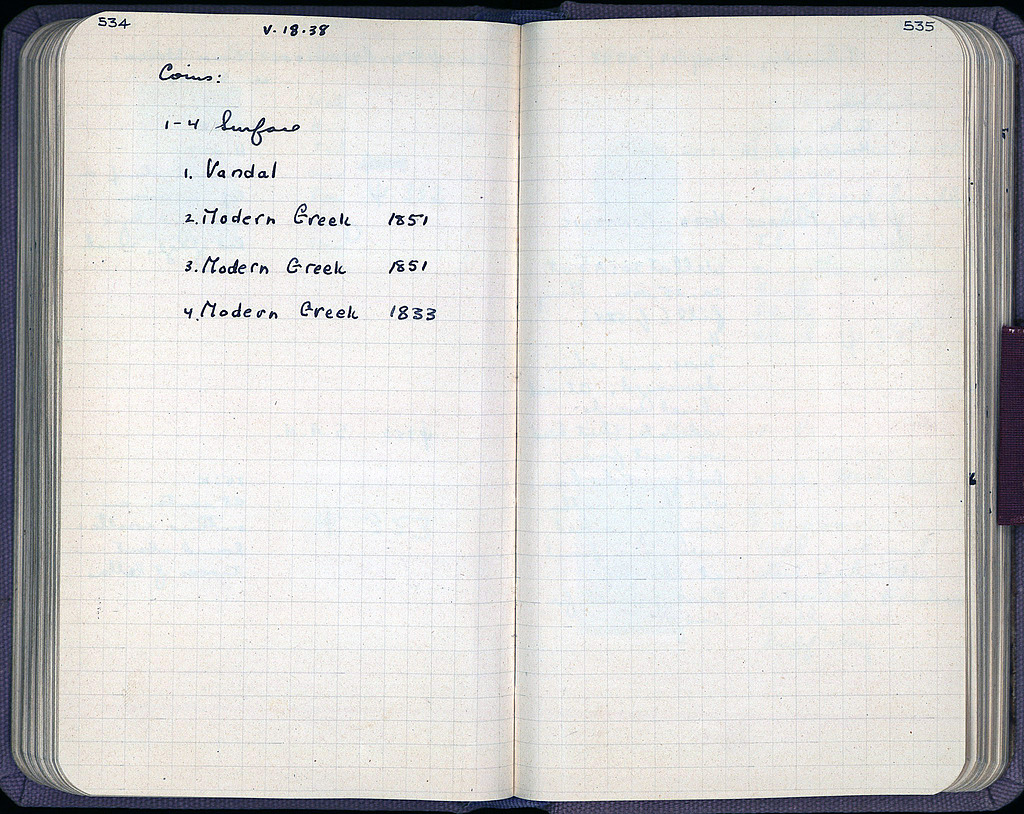 534
V. 18.38
Coins:
1-4 Surface
1. Vandal
2. Modern Greek 1851
3. Modern Greek 1851
4. Modern Greek 1833
535